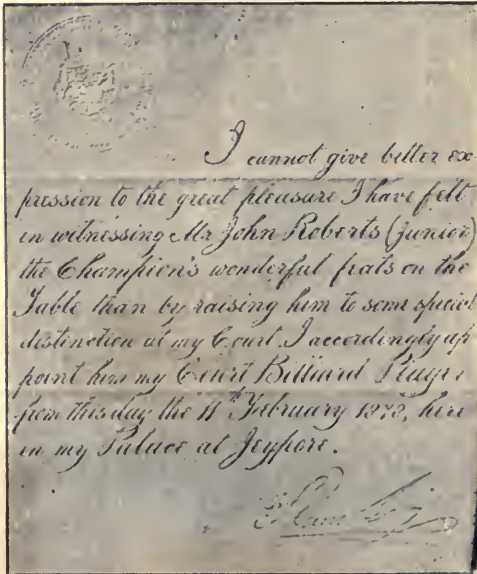 I cannot give better ex-
pression to the great pleasure I have felt
in witnessing Mr John Roberts (Junior)
the Champion's wonderful feats on the
Table than by raising him to some special
distinction at my Court I accordingly ap
point him my Court Billiard Player
from this day the 11th February 1878, here
in my Palace at Jeypore.